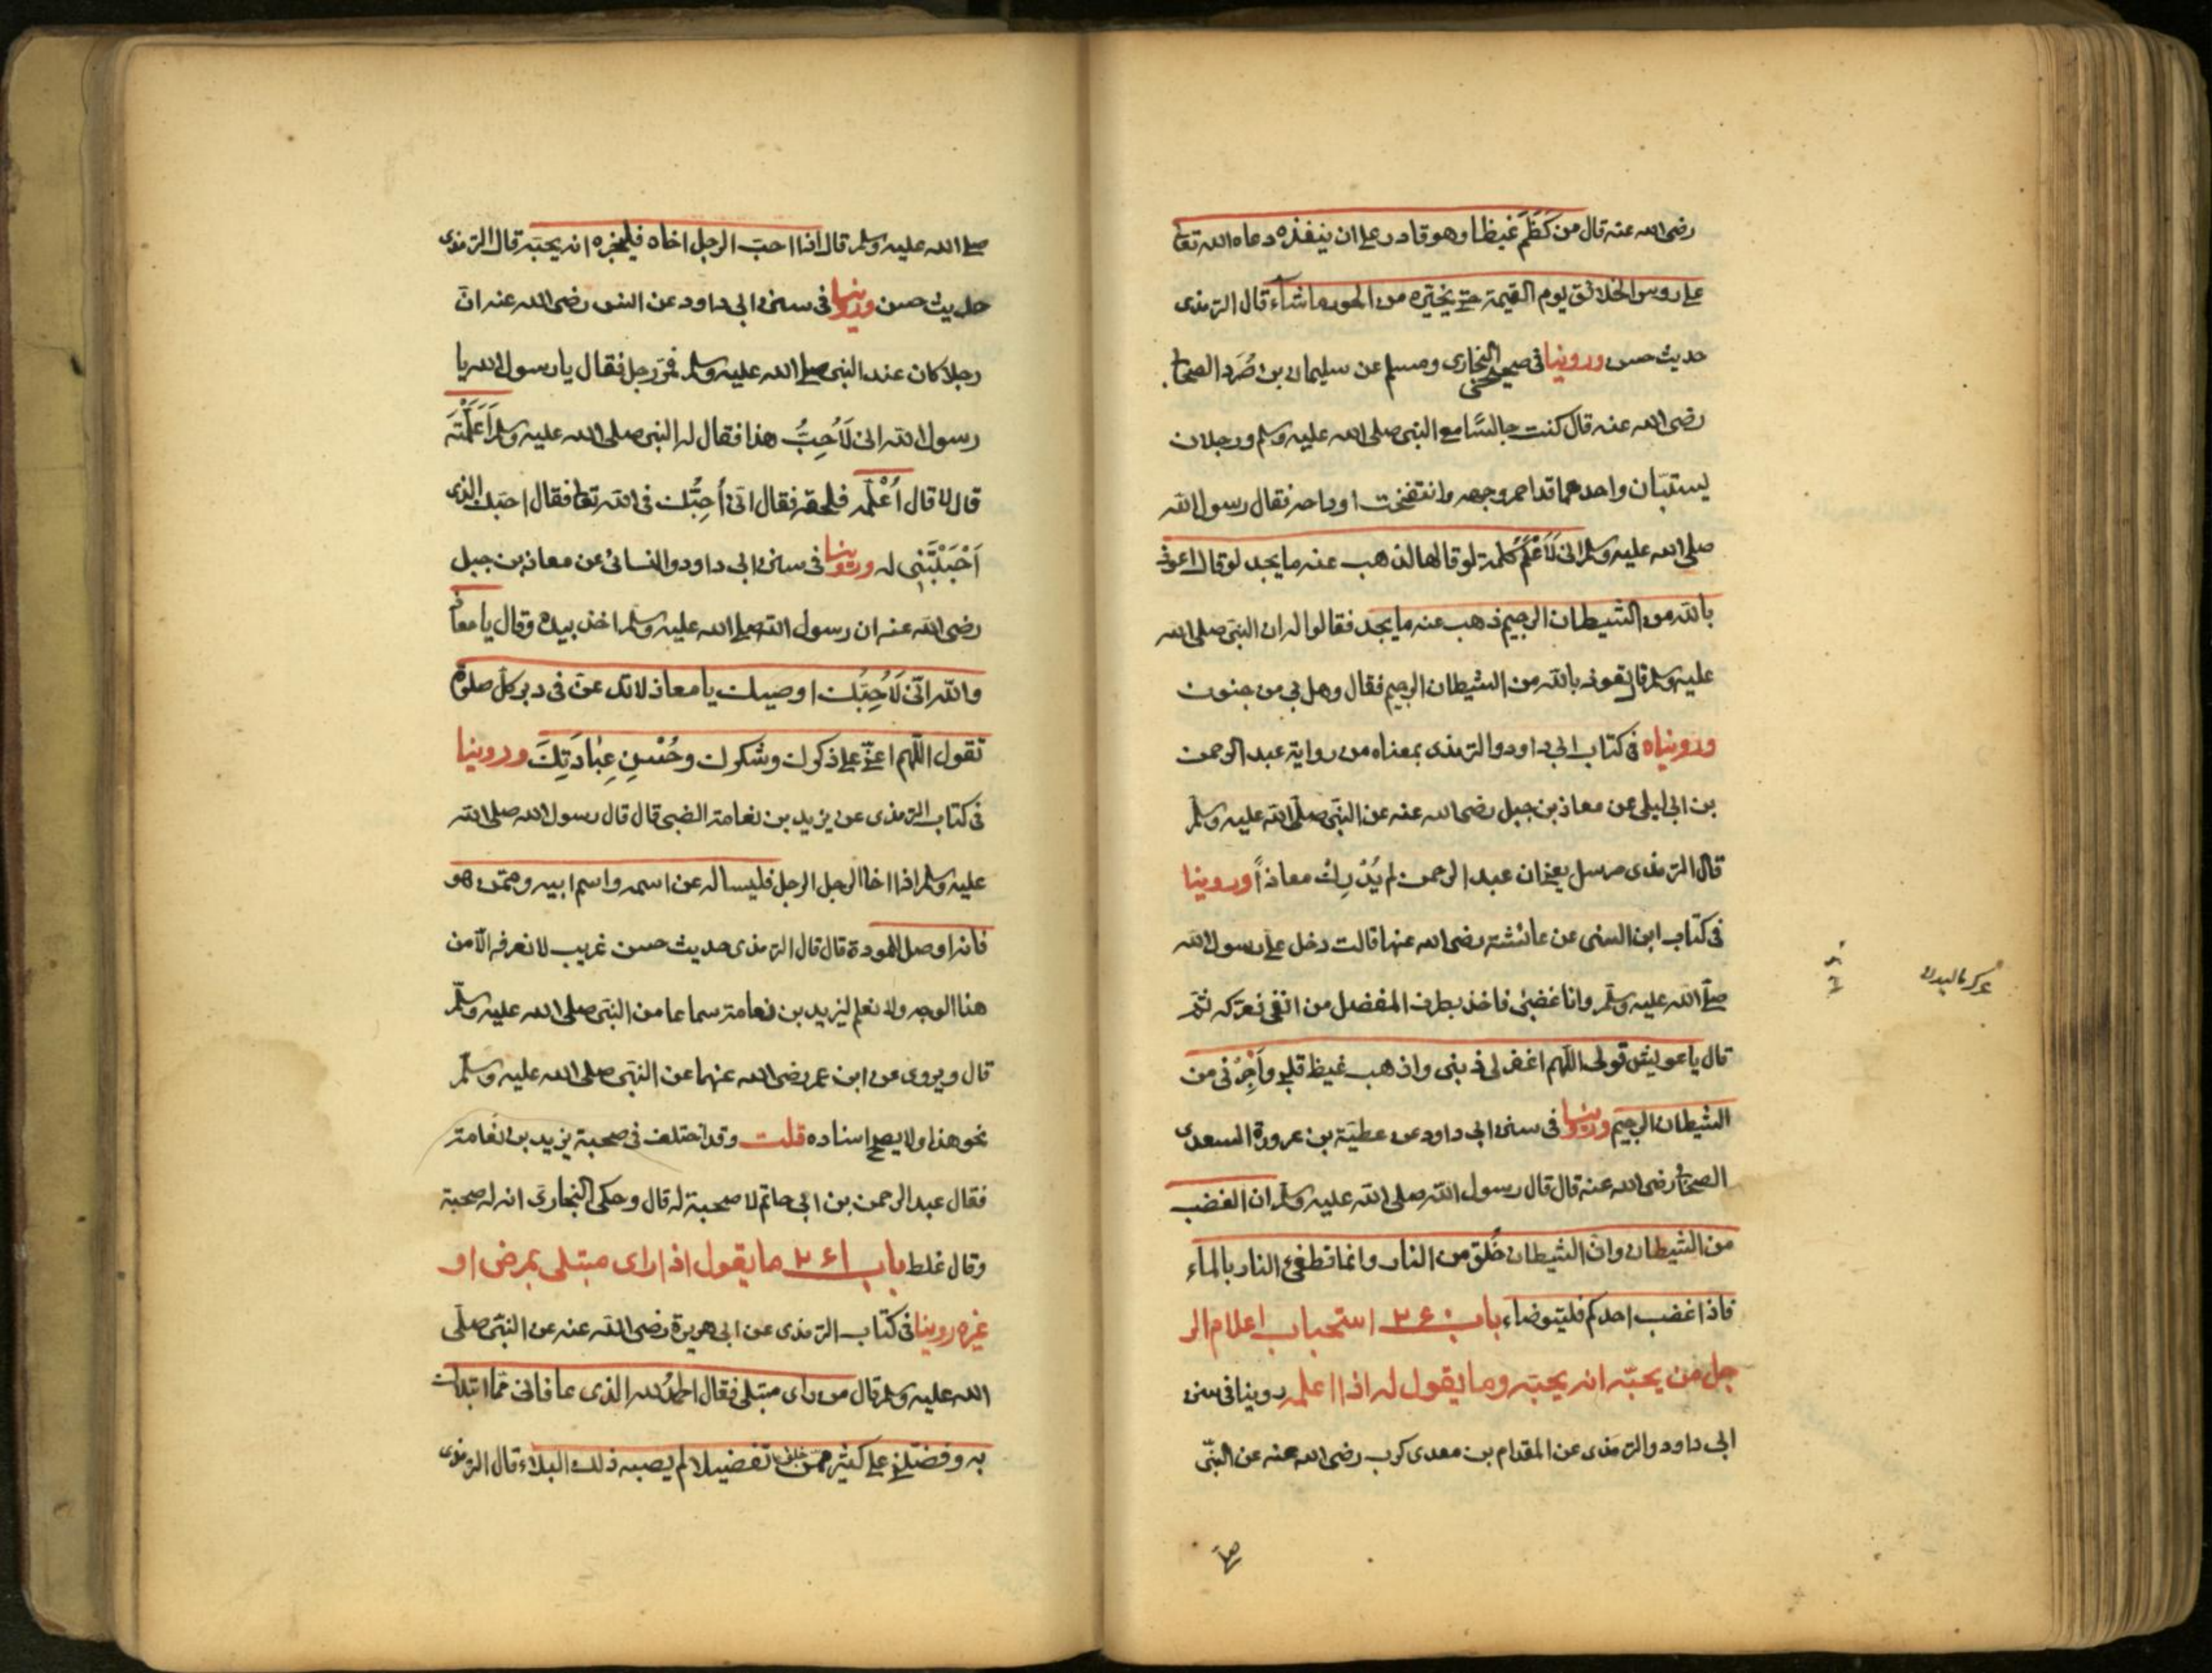 رضى الله عنه قال من كَظَمَ غيظا وهو قادر على ان ينفذه دعاه الله تعا
على روس الخلائق يوم القيمة حتى يخيّره من الحور ما شآء قال الترمذى
حديث حسن وروينا فى صحيحى البخارى ومسلم عن سليمان بن صُرَد الصحابى
رضى الله عنه قال كنت جالسًا مع النبى صلى الله عليه وسلم ورجلان
يستبّان واحدهما قد احمر وجهه وانتفخت اوداجه فقال رسول الله
صلى الله عليه وسلم انى لَاَعْلَمُ كلمة لو قالها لذهب عنه ما يجد لو قال اعوذ
بالله من الشيطان الرجيم ذهب عنه ما يجد فقالوا له ان النبىّ صلى الله
عليه وسلم قال تعوذ بالله من الشيطان الرجيم فقال وهل بى من جنون
وروبناه فى كتاب ابى داود والترمذى بمعناه من رواية عبد الرحمن
بن ابى ليلى عن معاذ بن جبل رضى الله عنه عن النبّى صلّى الله عليه وسلّم
قال الترمذى مرسل يعنى ان عبد الرحمن لم يُدْرِك معاذاً وروينا
فى كتاب ابن السنى عن عائشة رضى الله عنها قالت دخل على رسول الله
صلّى الله عليه وسلّم وانا غضبى فاخذ بطرف المفصل من انفى فعركه ثمّ
قال يا عويش قولى اللّهم اغفر لى ذنبى واذهب غيظ قلبى وأَجِرْنى من
الشيطان الرجيم وروينا فى سنن ابى داود عن عطيّة بن عروة السعدى
الصحابى رضى الله عنه قال قال رسول الله صلى الله عليه وسلم ان الغضب
من الشيطان وانّ الشيطان خُلق من النار وانما تطفئ النار بالماء
فاذا غضب احدكم فليتوضاء باب ٢٤٠ استحباب اعلام الر
جل من يحبّه انه يحبّه وما يقول له اذا اعلمه روينا فى سنن
ابى داود والترمذى عن المقدام بن معدى كرب رضى الله عنه عن النبّى
صلى الله عليه وسلم قال اذا احبّ الرجل اخاه فليخبره انه يحبّه قال الترمذى
حديث حسن وروينا فى سنن ابى داود عن انس رضى الله عنه انّ
رجلا كان عند النبى صلى الله عليه وسلم فمّر رجل فقال يا رسول الله يا
رسول الله انى لَاُحِبُّ هذا فقال له النبى صلى الله عليه وسلم اَاَعْلَمْتَه
قال لا قال اَعْلِمْه فلحقه فقال انّى اُحِبُّك فى الله تعا فقال احبّك الذى
اَحْبَبْتَنِى له وروينا فى سنن ابى داود والنسائى عن معاذ بن جبل
رضى الله عنه ان رسول الله صلى الله عليه وسلم اخذ بيده وقال يا معاذ
والله انّى لَاُحِبُّك اوصيك يا معاذ لا تدعنّ فى دبر كلّ صلوة
تقول اللّهم اعنّى على ذكرك وشكرك وحُسْنِ عِبَادَتِكَ وروينا
فى كتاب الترمذى عن يزيد بن نعامة الضبى قال قال رسول الله صلى الله
عليه وسلم اذا اخا الرجل الرجل فليساله عن اسمه واسم ابيه وممّن هو
فانه اوصل للمودة قال قال الترمذى حديث حسن غريب لا نعرفه الّا من
هذا الوجه ولا نعلم ليزيد بن نعامة سماعا من النبّى صلى الله عليه وسلّم
قال ويروى عن ابن عمر رضى الله عنهما عن النبّى صلى الله عليه وسلّم
نحو هذا ولا يصحّ اسناده قلت وقد اختلف فى صحبة يزيد بن نعامة
فقال عبد الرحمن بن ابى حاتم لا صحبة له قال وحكى البخارى انه له صحبة
وقال غلط باب ٢٤١ ما يقول اذا راى مبتلى بمرض او
غيره روينا فى كتاب الترمذى عن ابى هريرة رضى الله عنه عن النبّى صلّى
الله عليه وسلم قال من راى مبتلى فقال الحمدُ لله الذى عافانى ممّا ابتلاك
به وفضّلنى على كثير ممّن خلق تفضيلا لم يصبه ذلك البلاء قال الترمذى